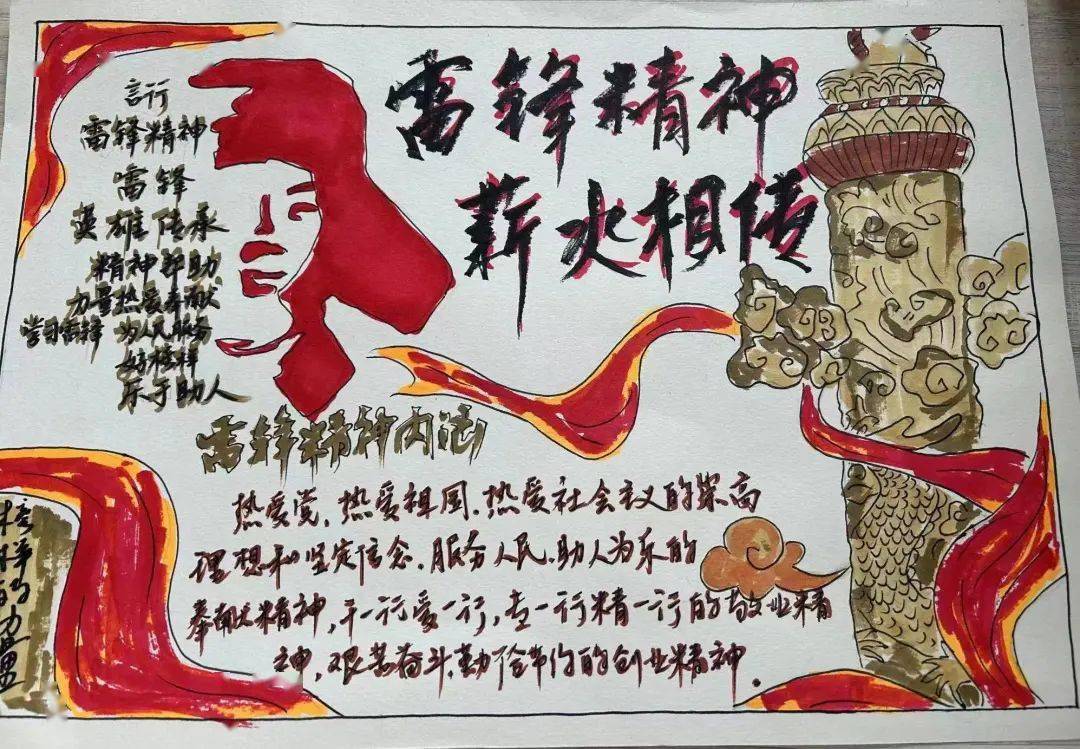 雷锋精神
薪火相传
言行
雷锋精神
雷锋
英雄传承
精神帮助
力量热爱奉献
学习雷锋 为人民服务
好榜样
乐于助人
雷锋精神内涵
热爱党,热爱祖国,热爱社会主义的崇高
理想和坚定信念,服务人民,助人为乐的
奉献精神,干一行爱一行,专一行精一行的敬业精
神,艰苦奋斗勤俭节约的创业精神.
榜样的力量